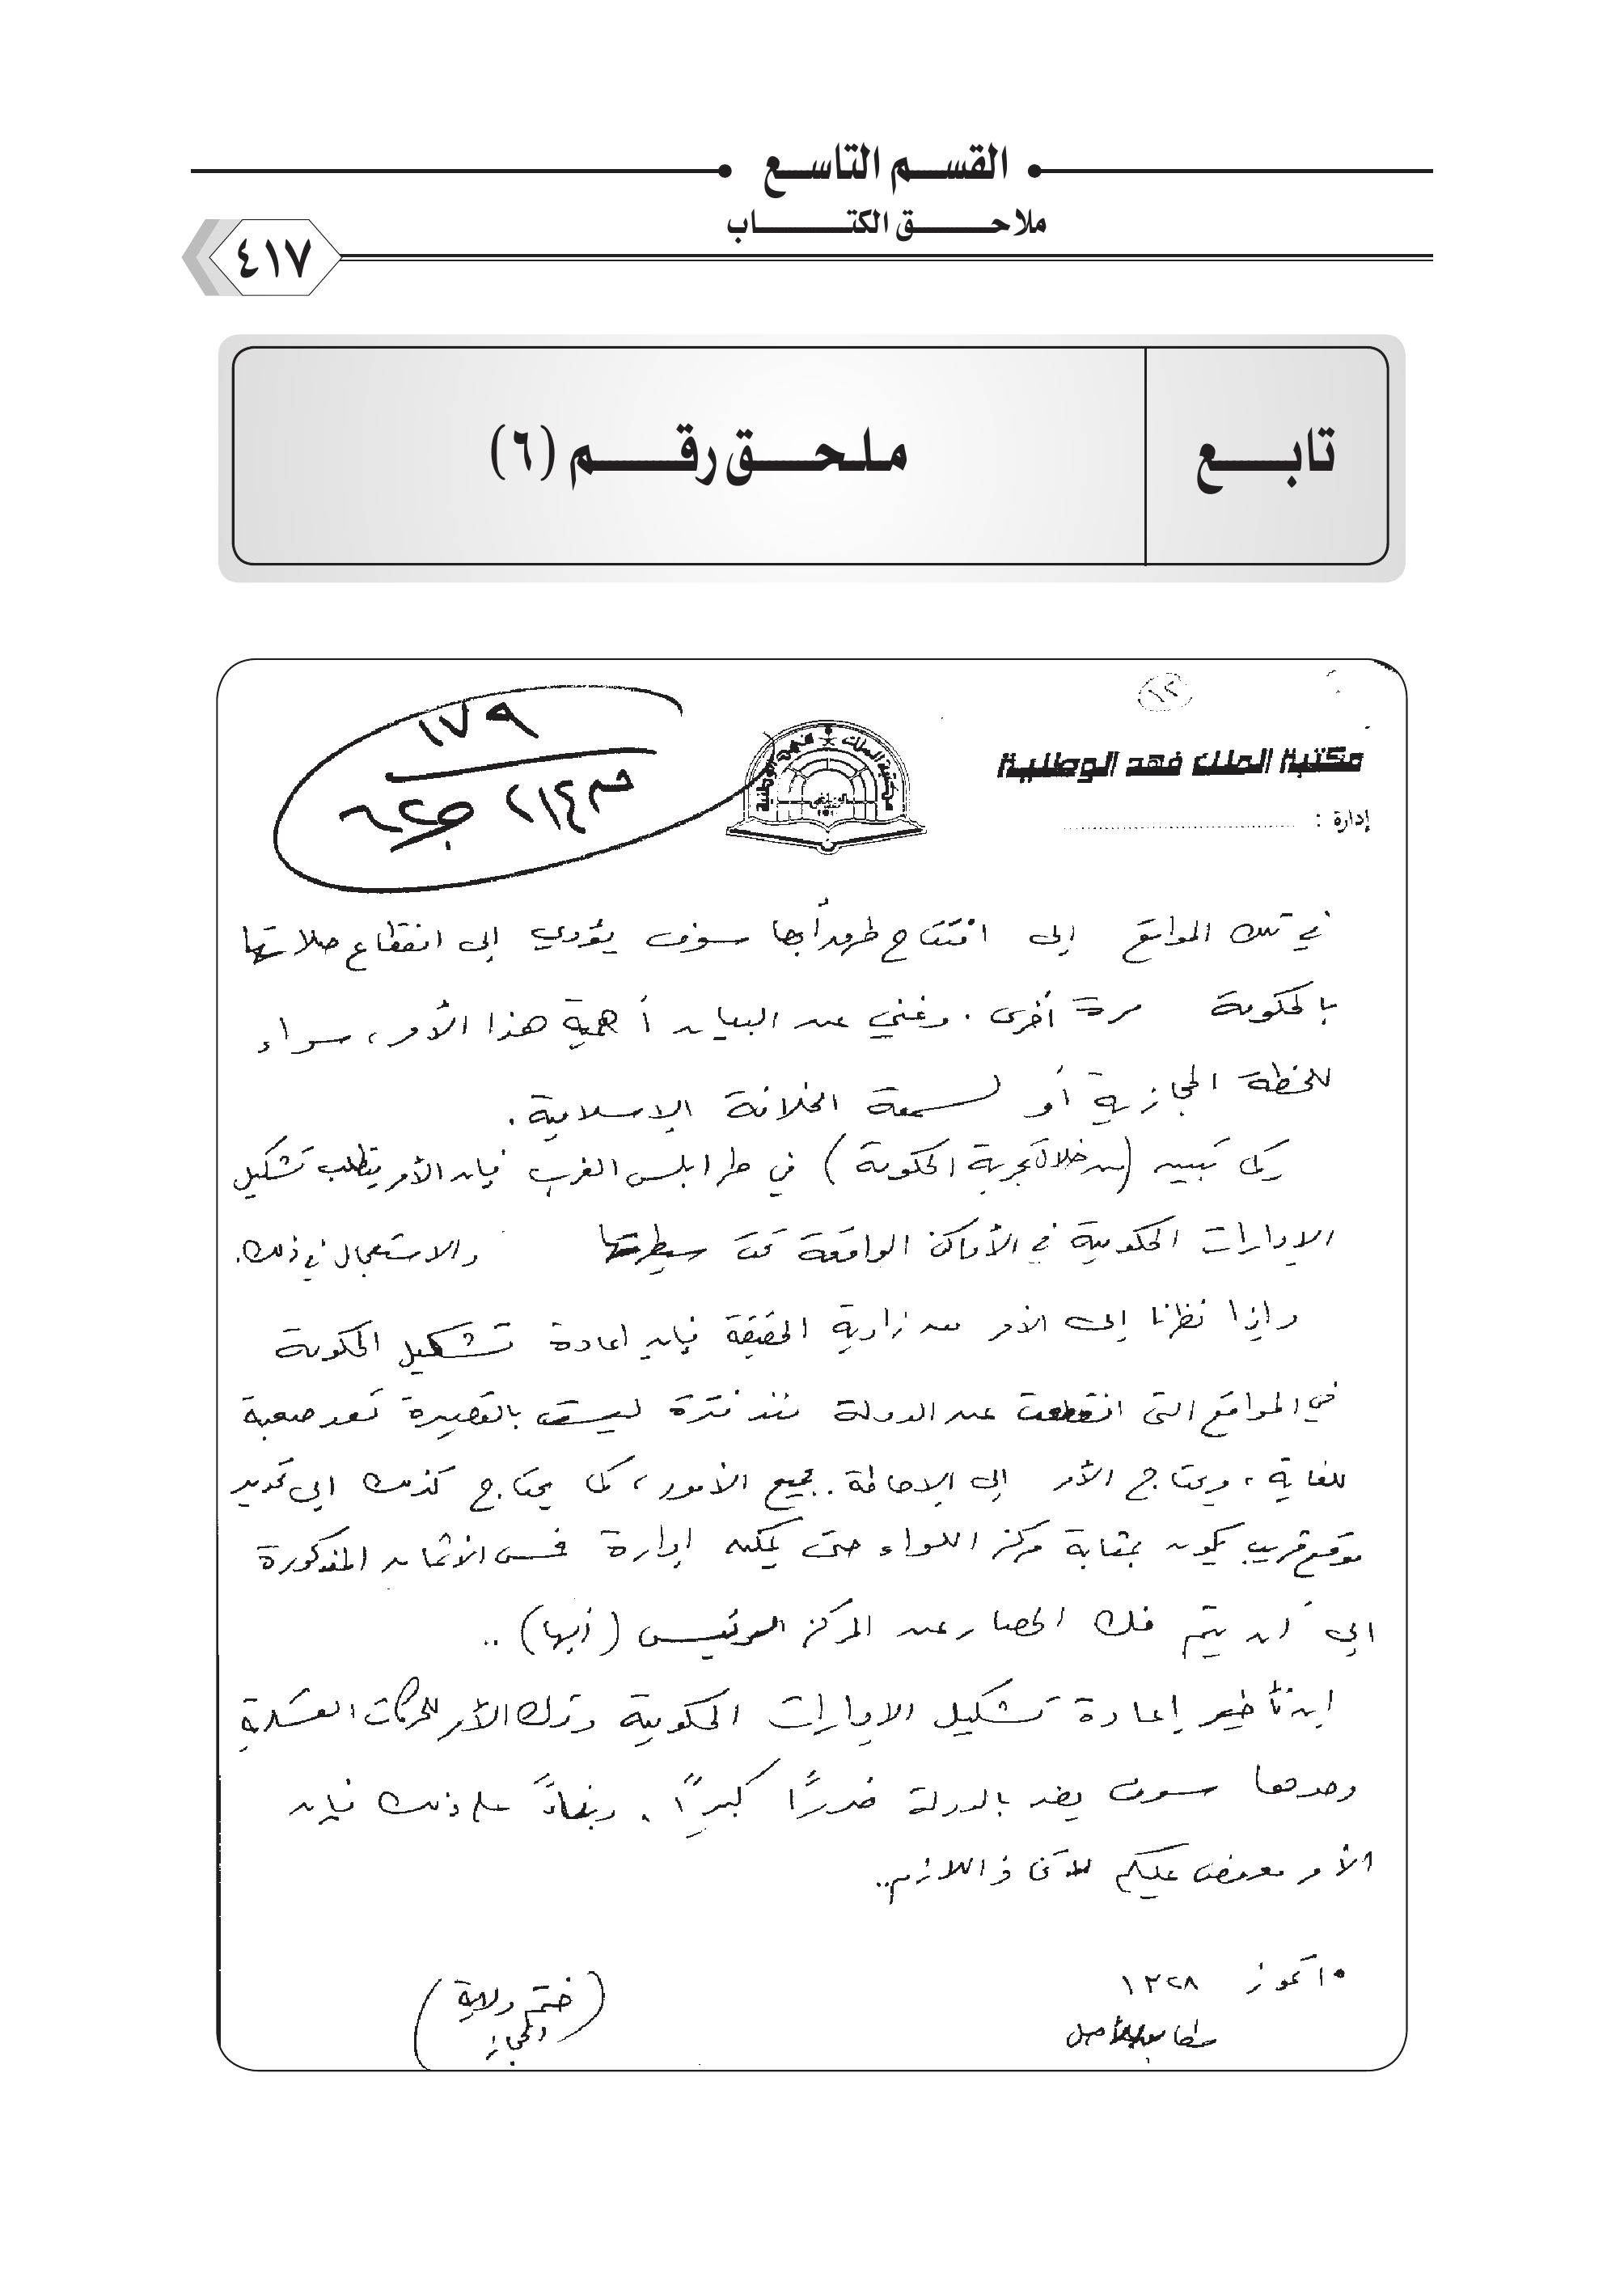 القسم التاسع
ملاحق الكتاب
٤١٧
تابع
ملحق رقم (٦)
١٢
١٧٩
مكتبة الملك فهد الوطنية
إدارة :
في تلك المواقع إلى افتتاح طريق أبها سوف يؤدي إلى انقطاع صلاتها
بالحكومة مرة أخرى . وغني عن البيان أهمية هذا الأمر ، سواء
للخطة الحجازية أو لسمعة الخلافة الإسلامية .
وكما تبين (من خلال تجربة الحكومة) في طرابلس الغرب فإن الأمر يتطلب تشكيل
الإدارات الحكومية في الأماكن الواقعة تحت سيطرتها والاستعجال في ذلك .
وإذا نظرنا إلى الأمر من زاوية الحقيقة فإن اعادة تشكيل الحكومة
في المواقع التي انقطعت عن الدولة منذ فترة ليست بالقصيرة تعد صعبة
للغاية ، ويحتاج الأمر إلى الإحاطة بجميع الأمور ، كما يحتاج كذلك الى تحديد
موقع قريب يكون بمثابة مركز اللواء حتى يمكن إدارة المذكورة
الى أن يتم فك الحصار عن المركز الرئيس (أبها) ..
إن تأخير إعادة تشكيل الإدارات الحكومية وترك الأمر للحركات العسكرية
وحدها سوف يضر بالدولة ضررًا كبيرًا . وبناءً على ذلك فإن
الأمر معروض عليكم لاتخاذ اللازم ..
١٥ تموز ١٣٢٨
طابع الأصل
(ختم ولاية
الحجاز)